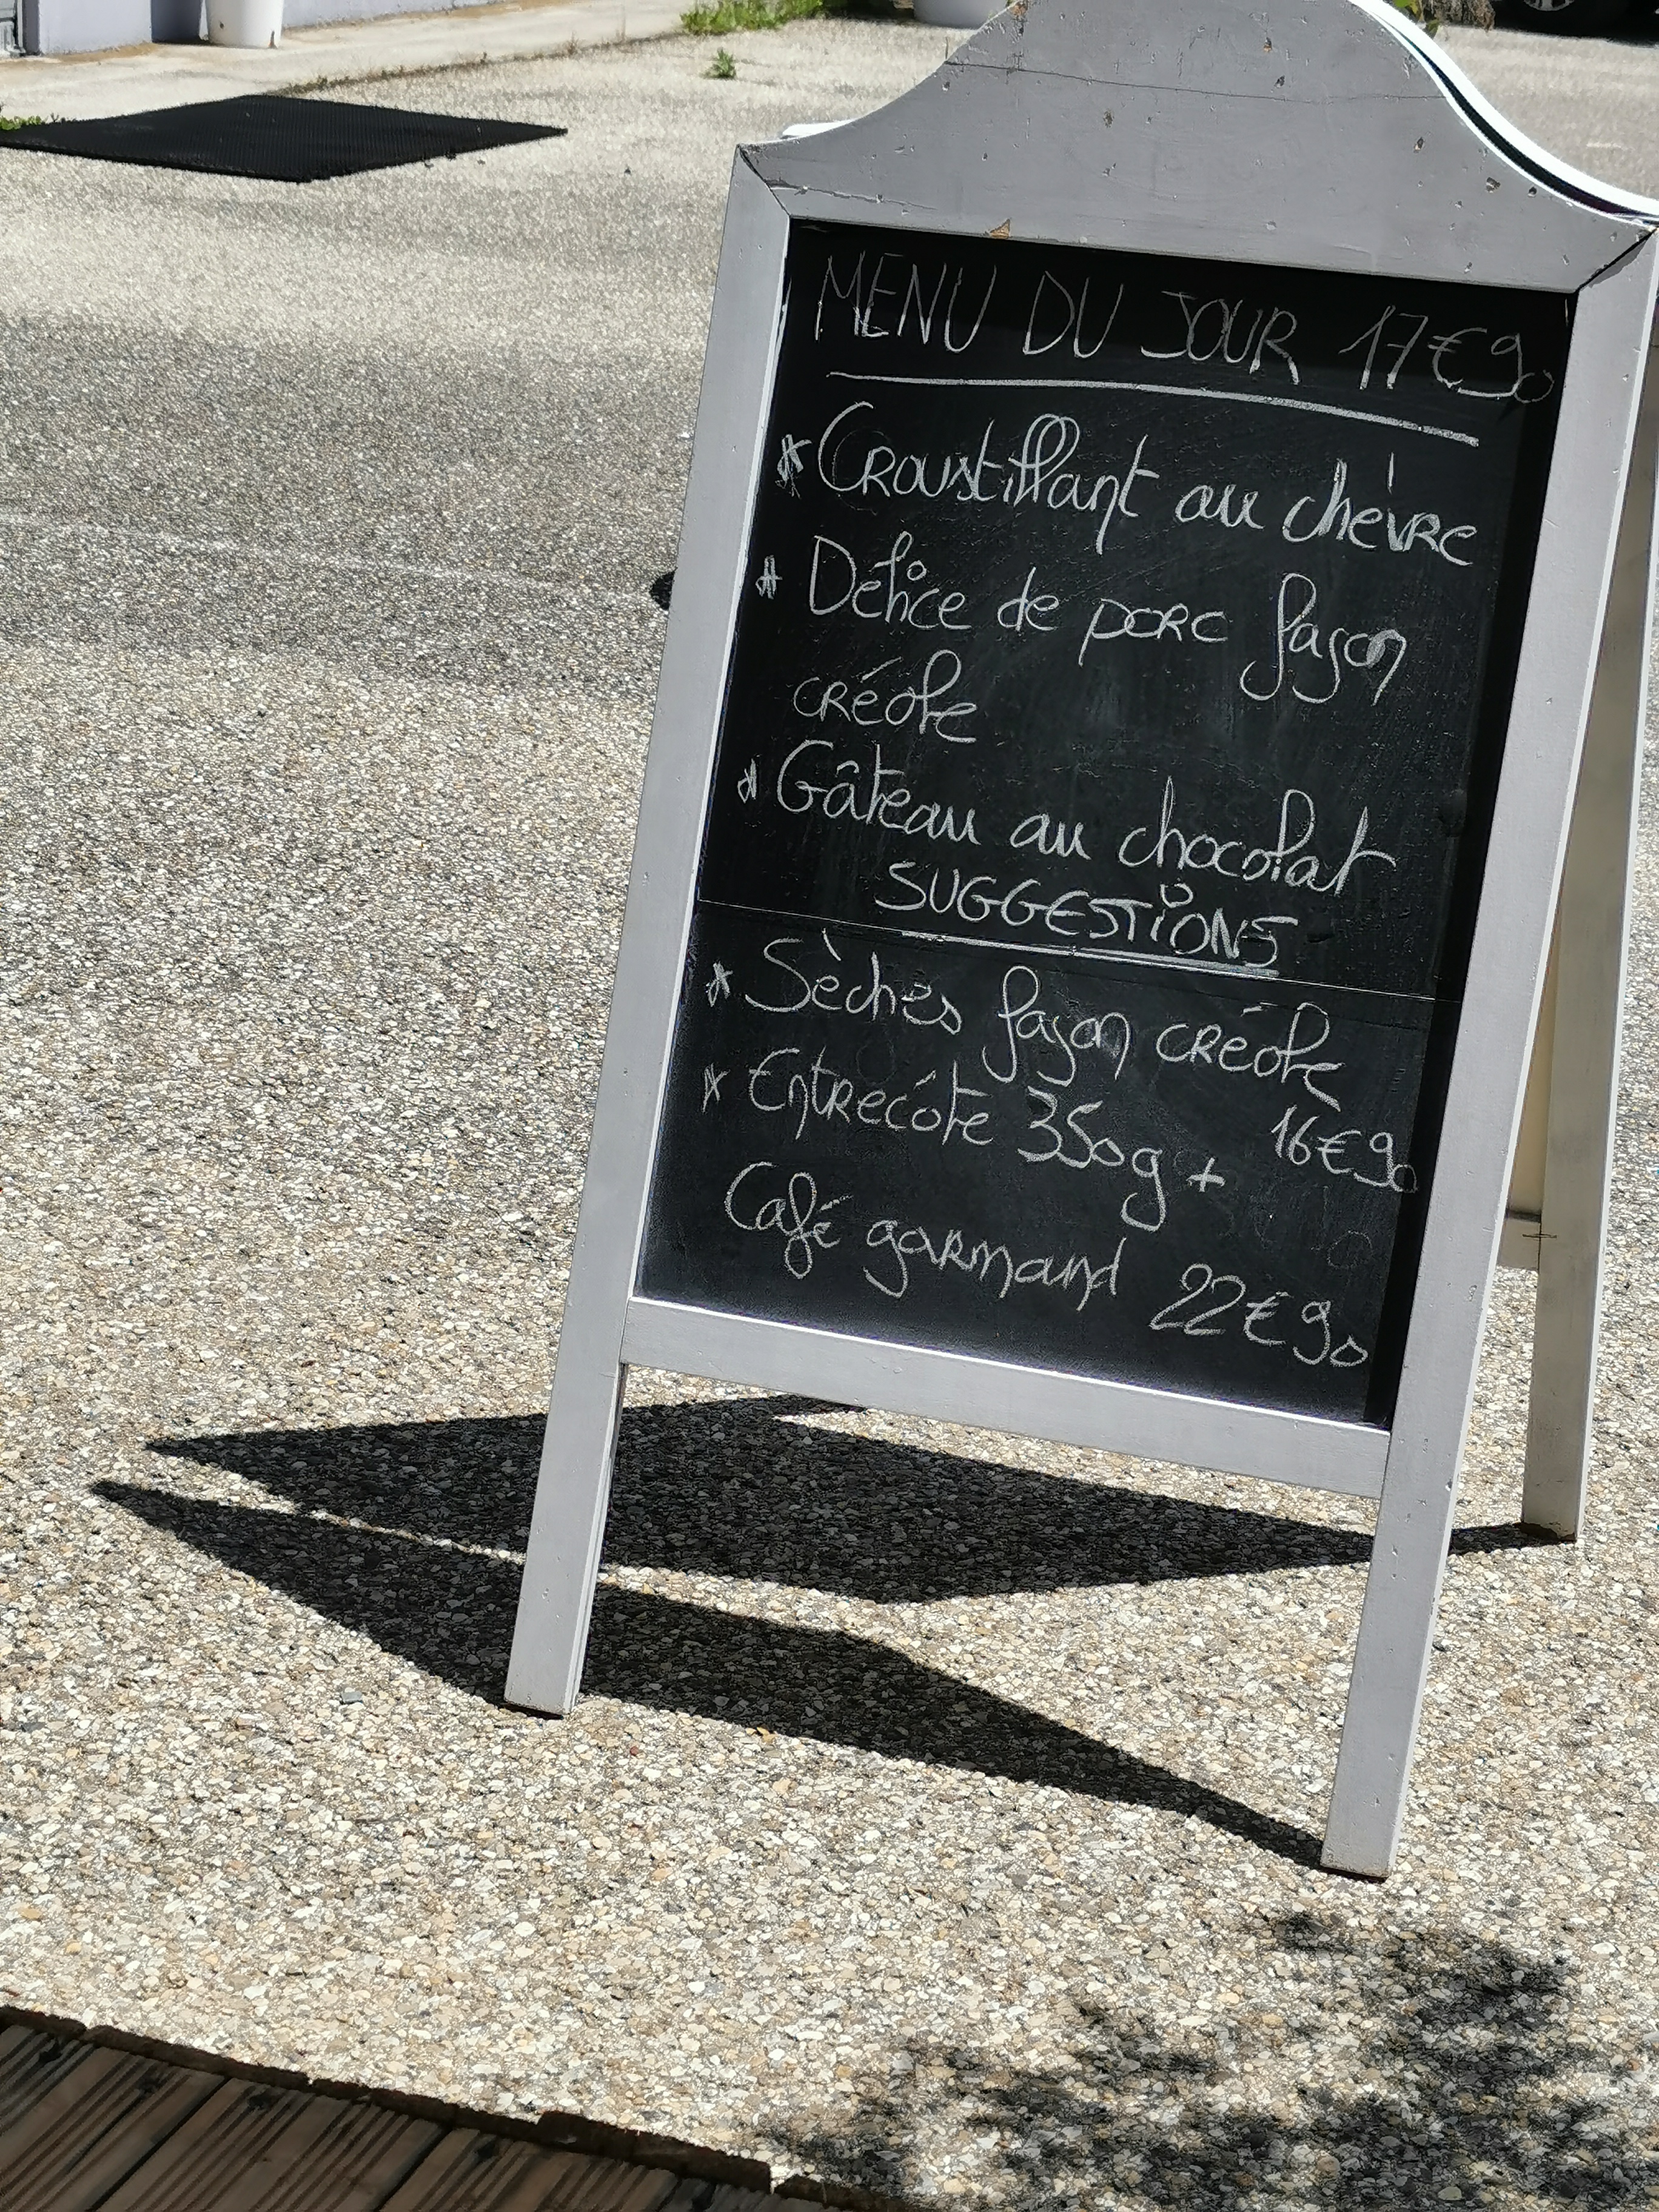 MENU DU JOUR 17€90
* Croustillant au chèvre
* Délice de porc façon
créole
* Gâteau au chocolat
SUGGESTIONS
* Sèches façon créole
16€90
* Entrecôte 350g +
Café gourmand 22€90